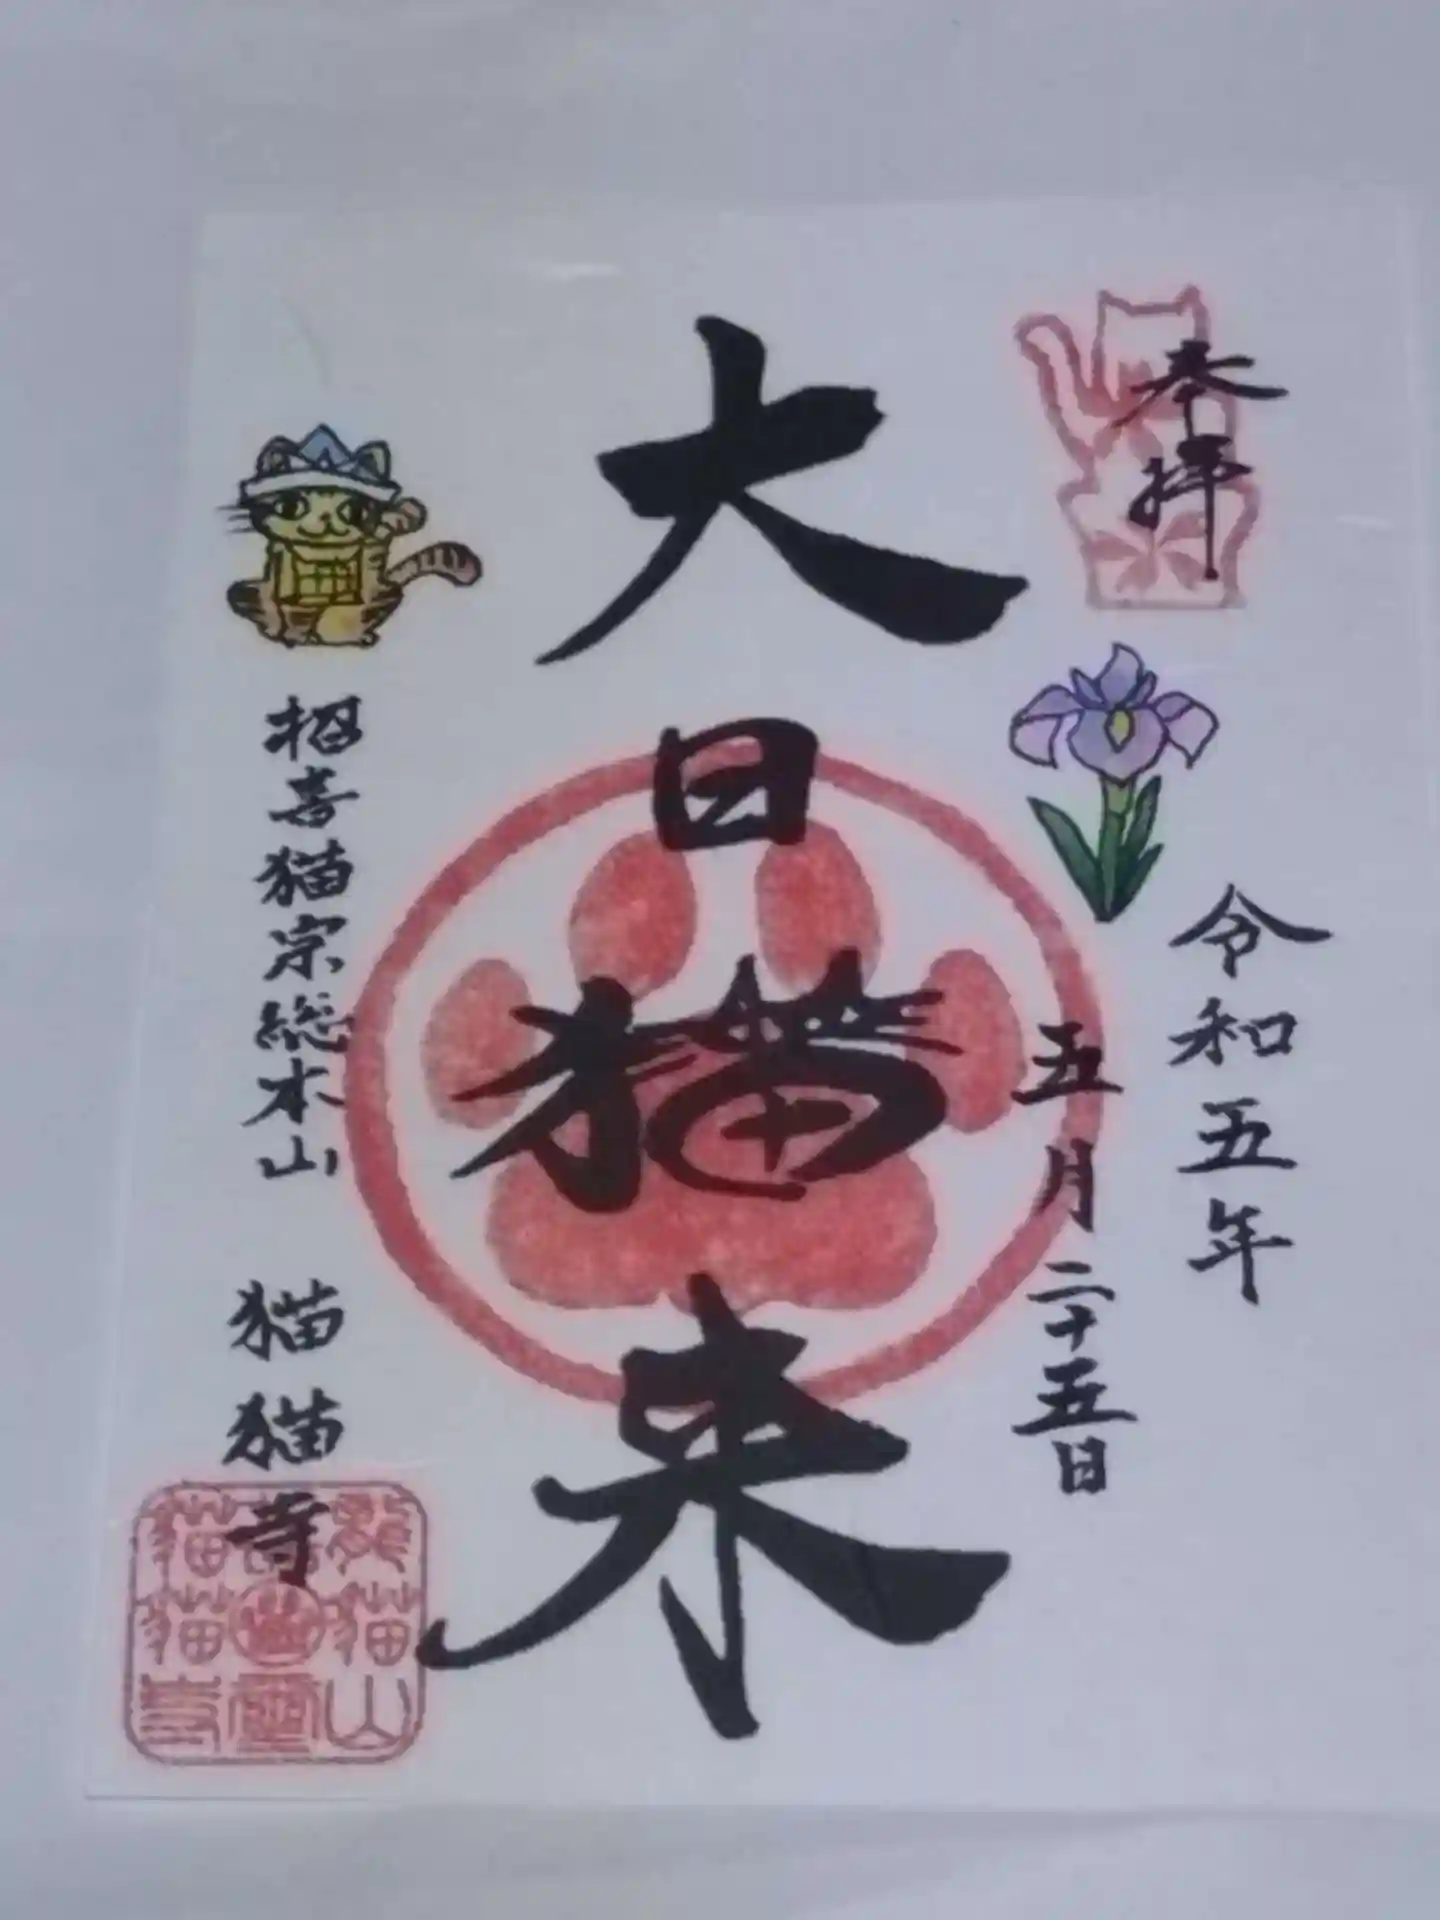 奉拝
令和五年
五月二十五日
大日猫来
招喜猫宗総本山 猫猫寺